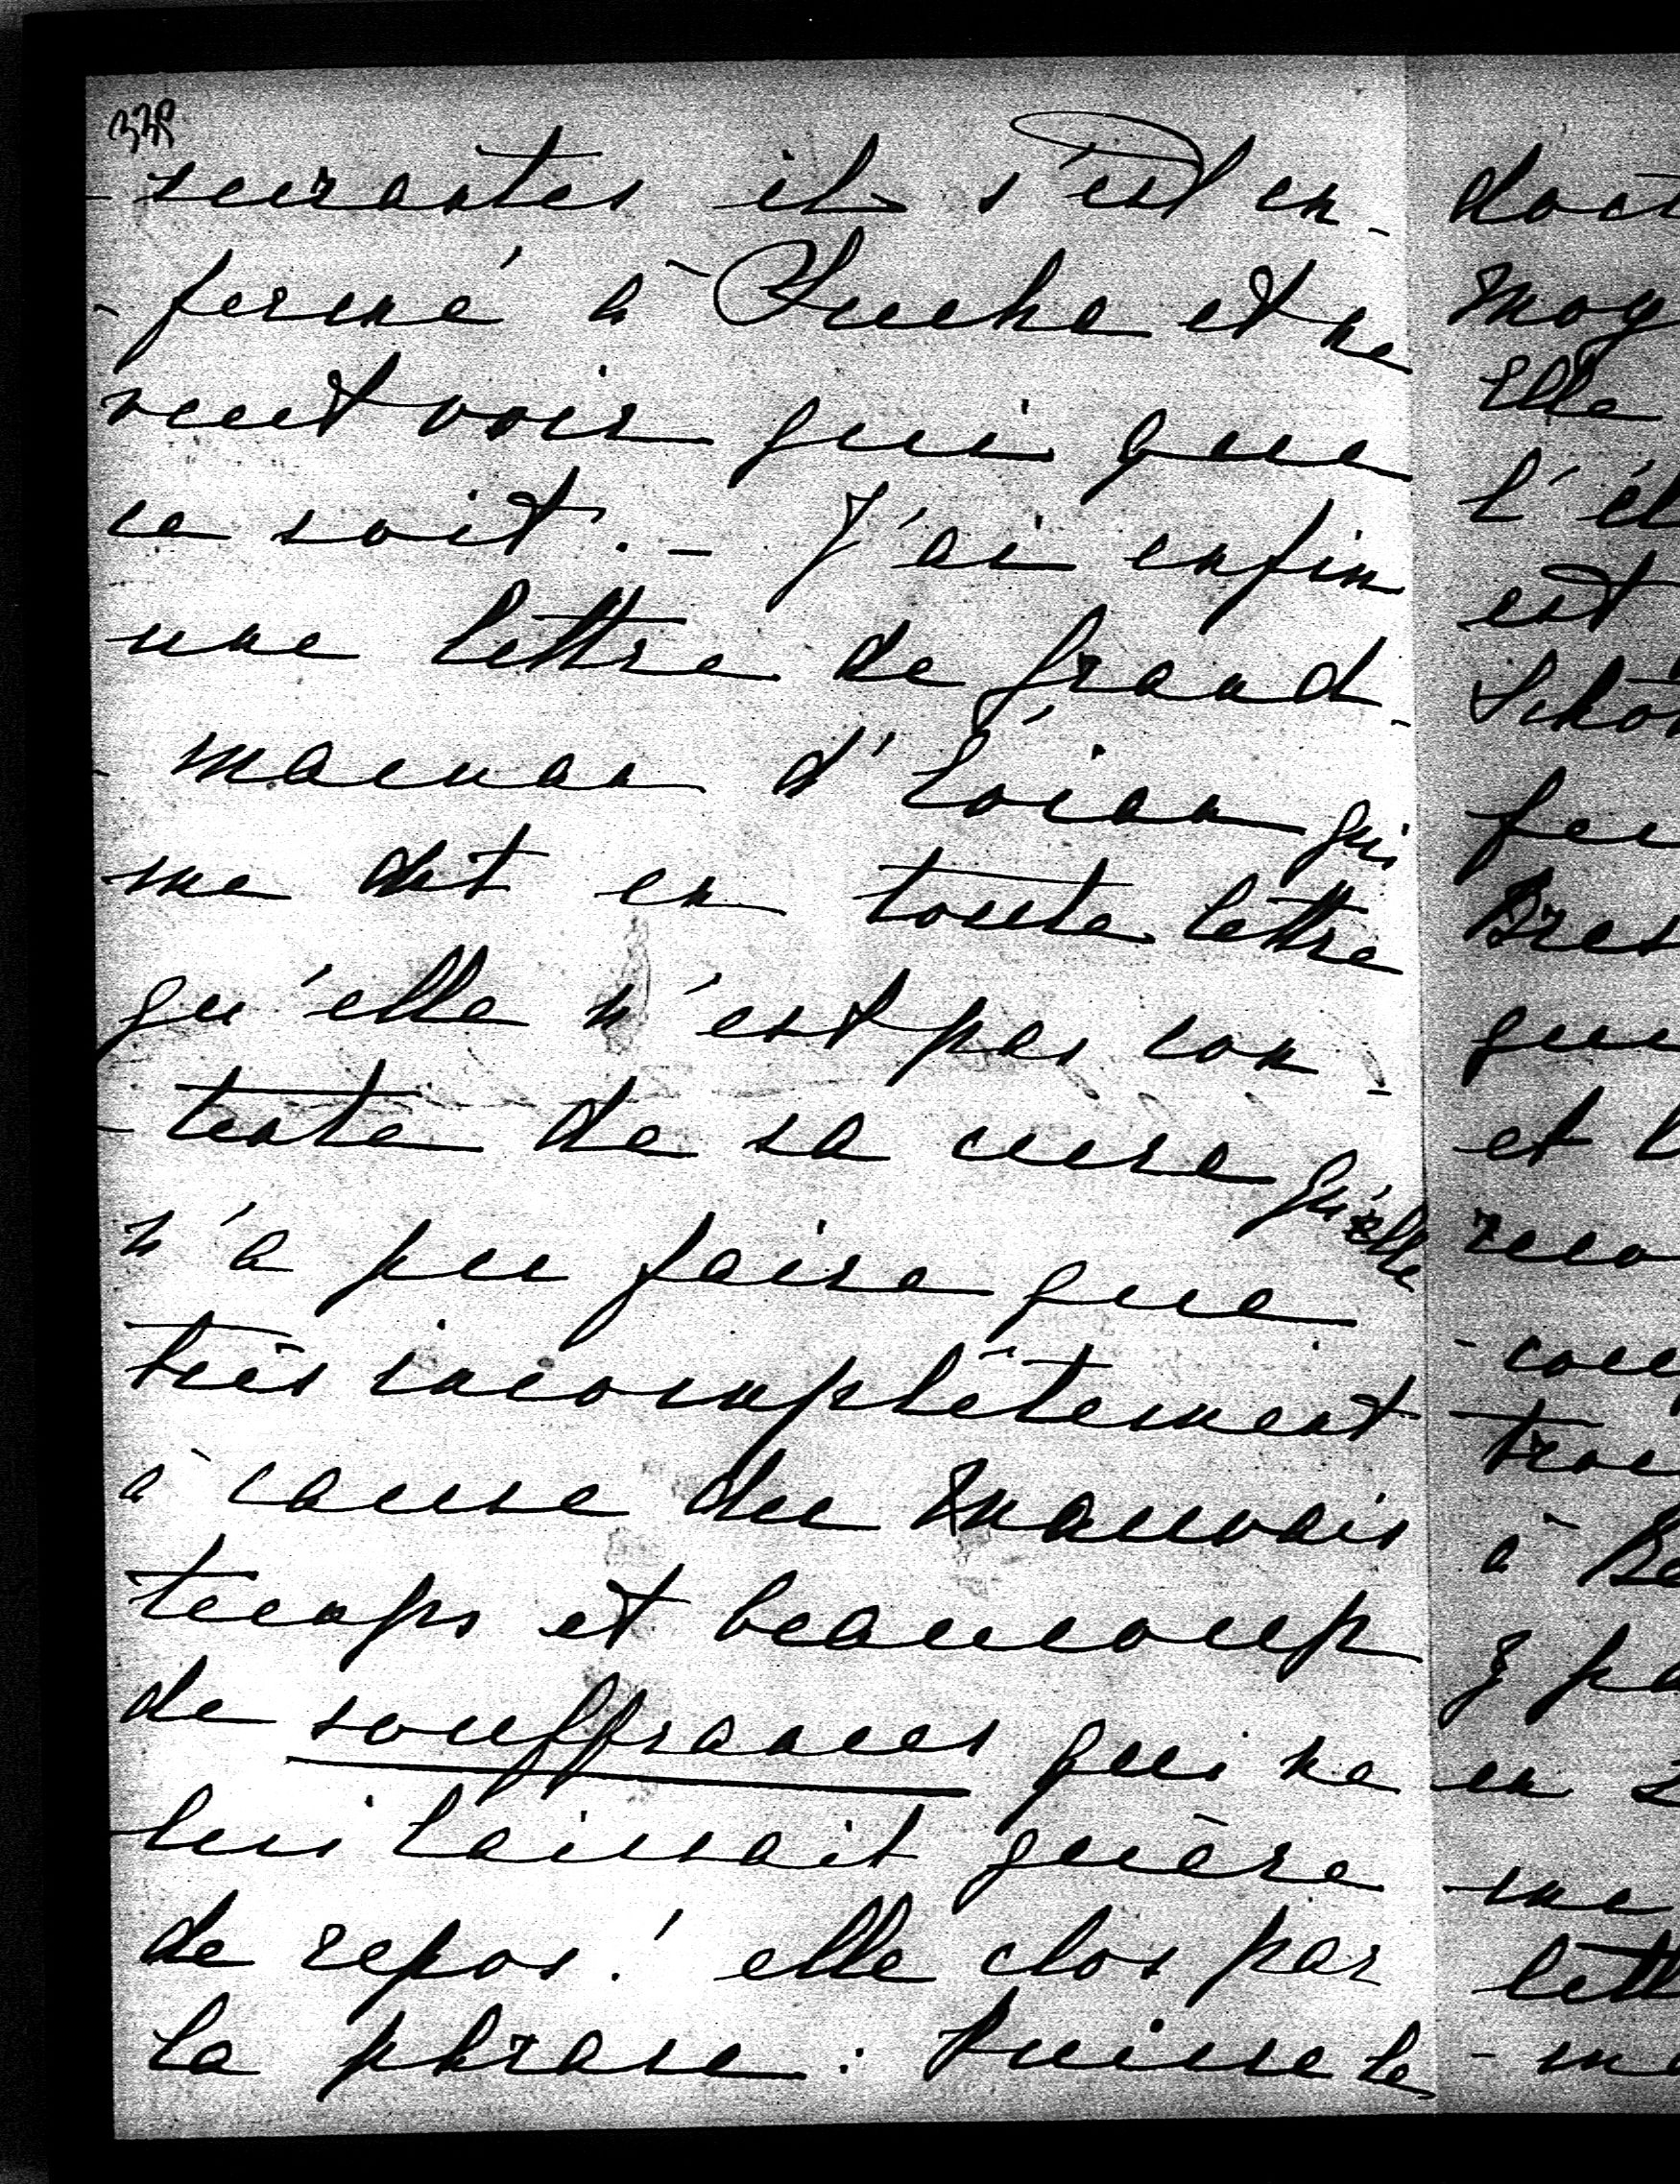 338
-seurantes il s'est en-
-fermé à Pluche et ne
veut voir qui que
ce soit. - J'ai enfin
une lettre de grand-
-maman d'Loian qui
me dit en toute lettre
qu'elle n'est pas con-
-tente de sa cure qu'elle
n'a pu faire que
très incomplètement
à cause du mauvais
temps et beaucoup
de souffrances qui ne
lui laissait guère
de repos! elle clos par
la phrase: Puisse le
Elle
l'él
est
feu
Bres
que
et l
à Be
y pa
en
me
lett